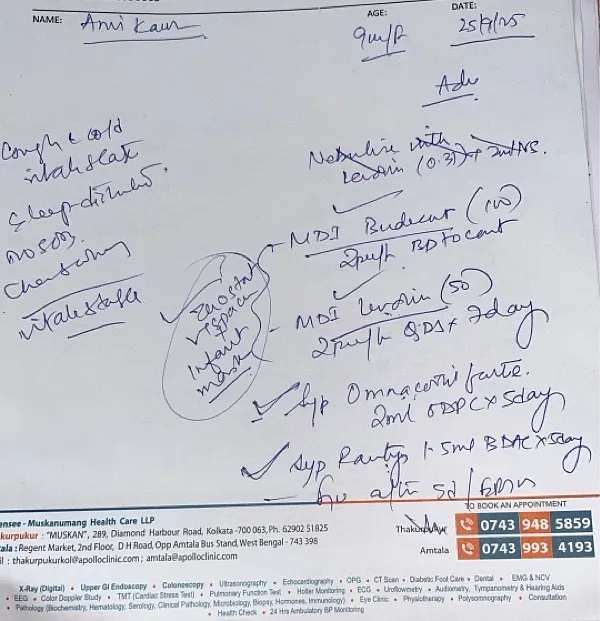 NAME: Anvi Kaur
AGE: 9m/F
DATE: 25/9/25
Adv
Cough & cold
vitals stable
Sleep disturbed.
no SOB.
Chest
vitals stable
Nebulize with
Levolin (0.31) + 2ml NS.
MDI Budecort (100)
2puff BD to cont
MDI Levolin (50)
2puff QDS x 7day
Zerostat
v spacer
Infant
mask
Syp Omnacortil forte.
2ml ODPC x 5day
Syp 1.5ml BDAC x 5day
after 5d /
ensee - Muskanumang Health Care LLP
kurpukur : "MUSKAN", 289, Diamond Harbour Road, Kolkata -700 063, Ph. 62902 51825
tala : Regent Market, 2nd Floor, D H Road, Opp Amtala Bus Stand, West Bengal - 743 398
il : thakurpukurkol@apolloclinic.com ; amtala@apolloclinic.com
TO BOOK AN APPOINTMENT
Thakurpukur 0743 948 5859
Amtala 0743 993 4193
X-Ray (Digital) • Upper GI Endoscopy • Colonoscopy • Ultrasonography • Echocardiography • OPG • CT Scan • Diabetic Foot Care • Dental • EMG & NCV
• EEG • Color Doppler Study • TMT (Cardiac Stress Test) • Pulmonary Function Test • Holter Monitoring • ECG • Uroflowmetry • Audiometry, Tympanometry & Hearing Aids
• Pathology (Biochemistry, Hematology, Serology, Clinical Pathology, Microbiology, Biopsy, Hormones, Immunology) • Eye Clinic • Physiotherapy • Polysomnography • Consultation
• Health Check • 24 Hrs Ambulatory BP Monitoring